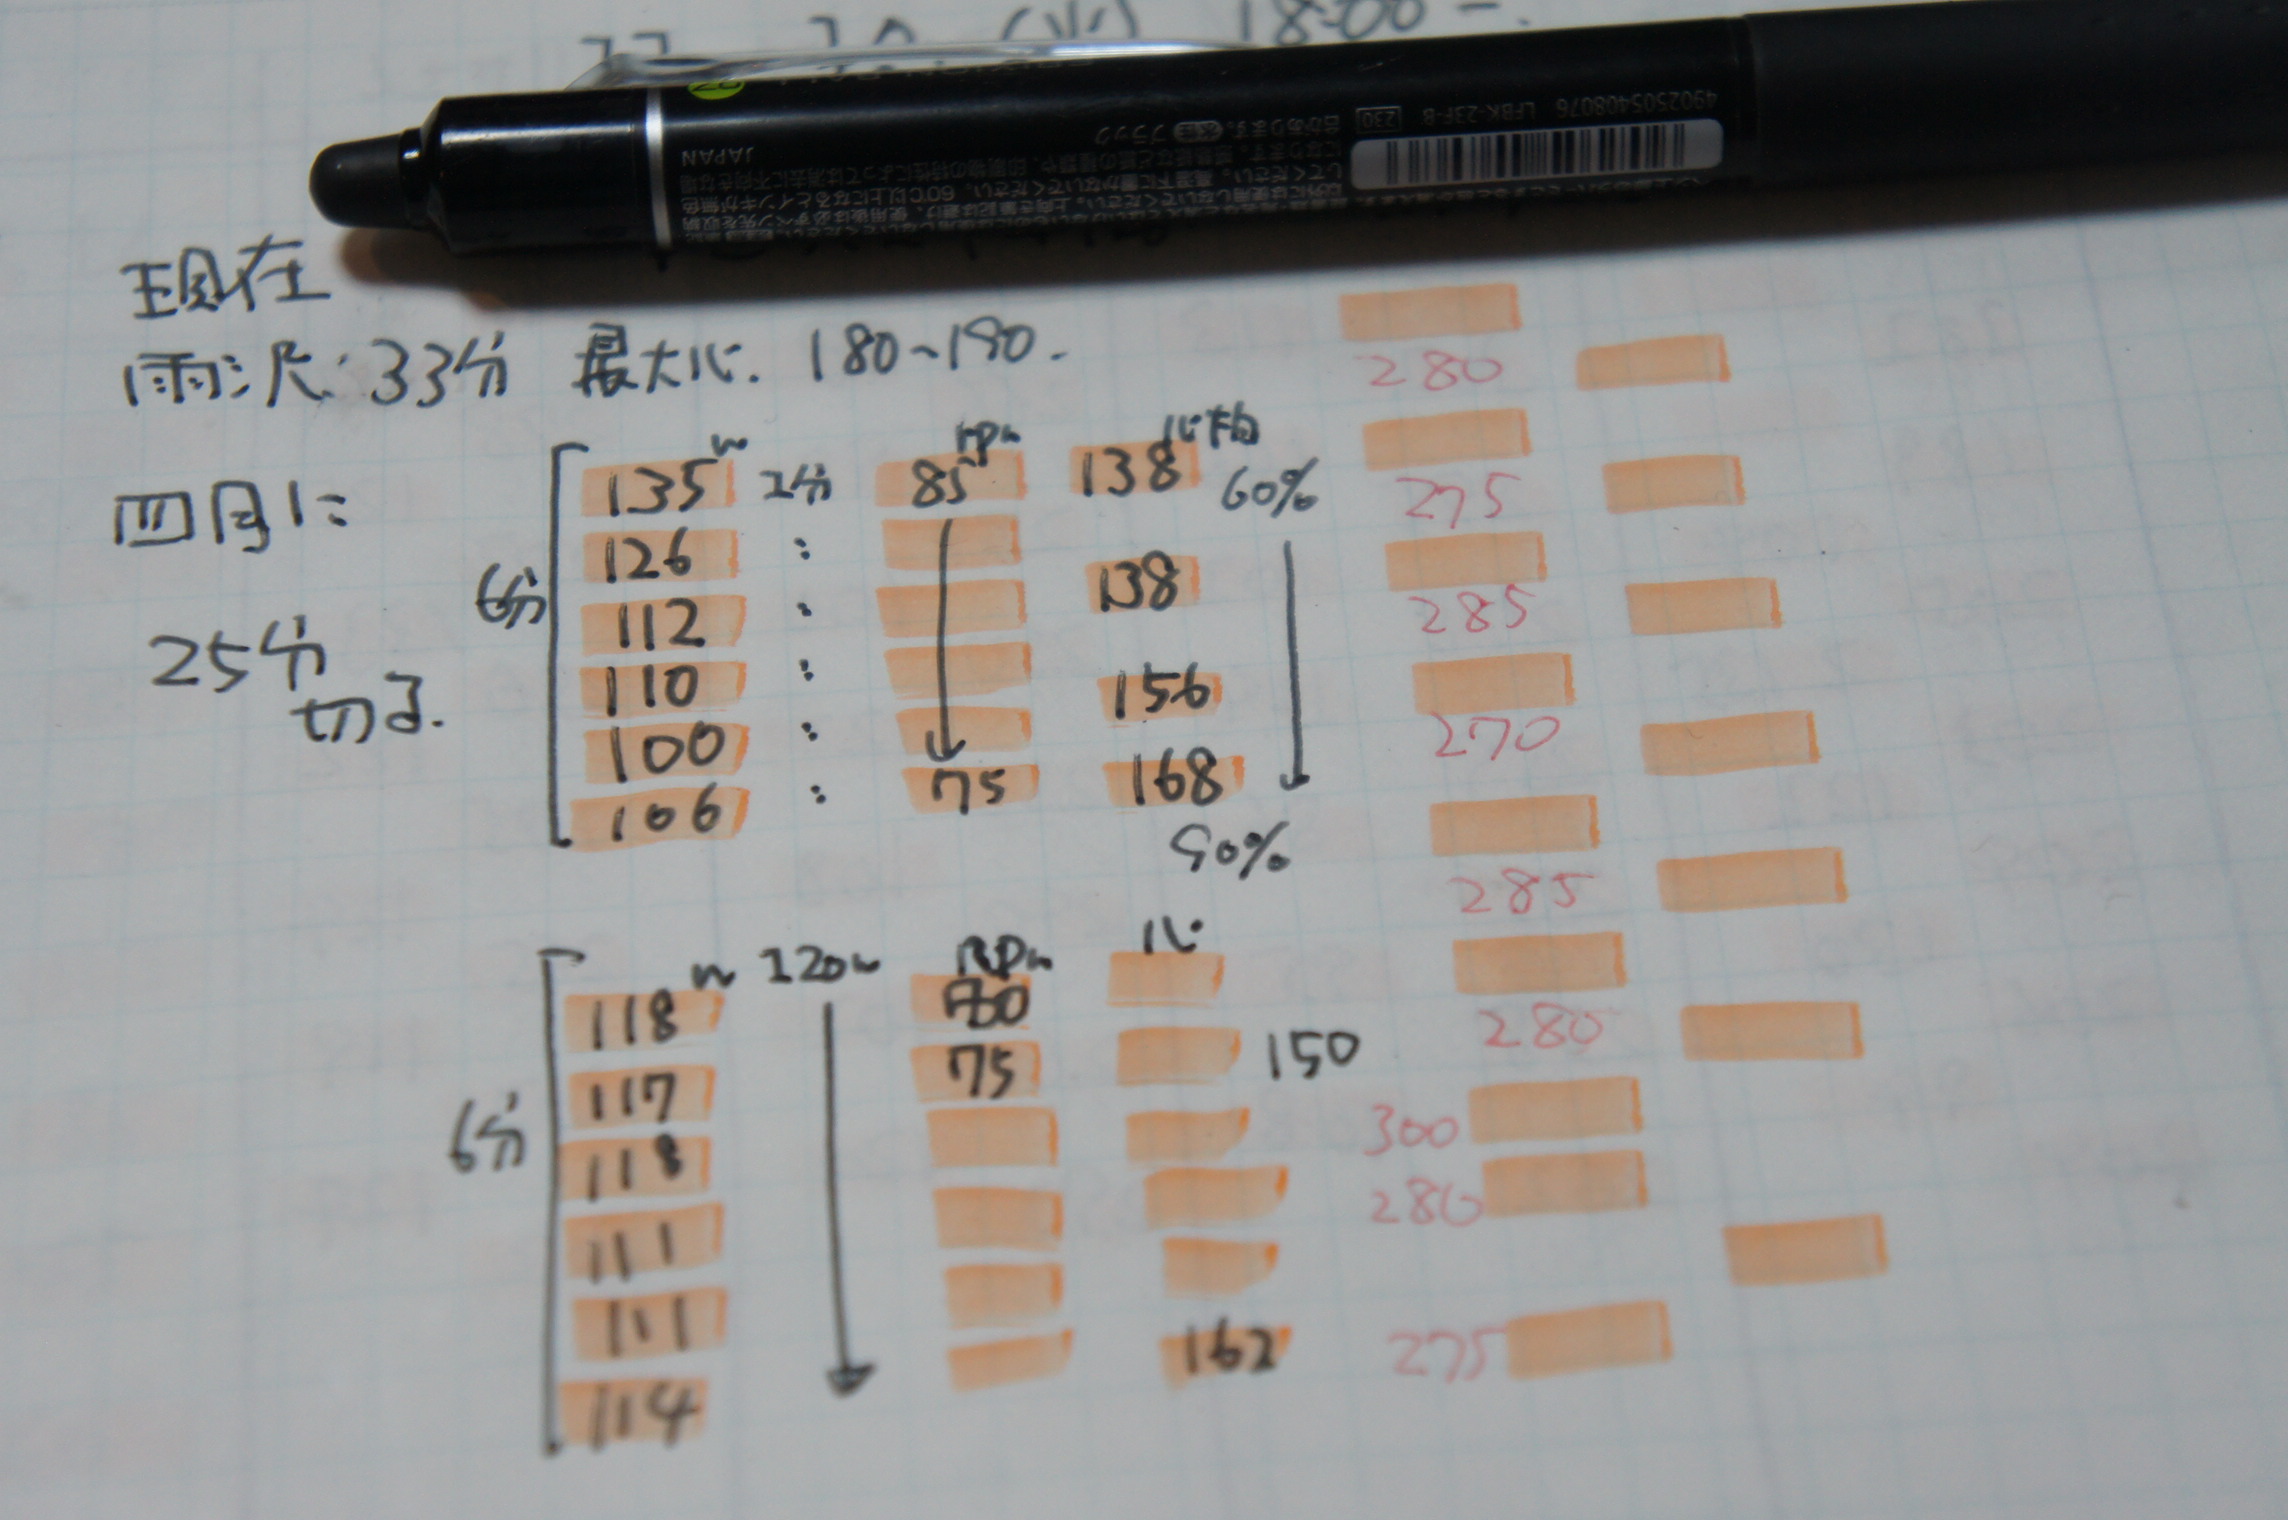 18:00 -.
JAPAN
ブラック
230
LFBK-23F-B
4902505408076
現在
雨沢: 33分 最大心. 180~190.
四月に
25分
切る.
6分
w rpm 心拍
135 1分 85 138 60%
126 :
138
112 :
110 :
156
100 :
106 : 75 168
90%
6分
w 120w RPm 心
118 80
117 75 150
118
111
111
162
114
280
275
285
270
285
280
300
280
275